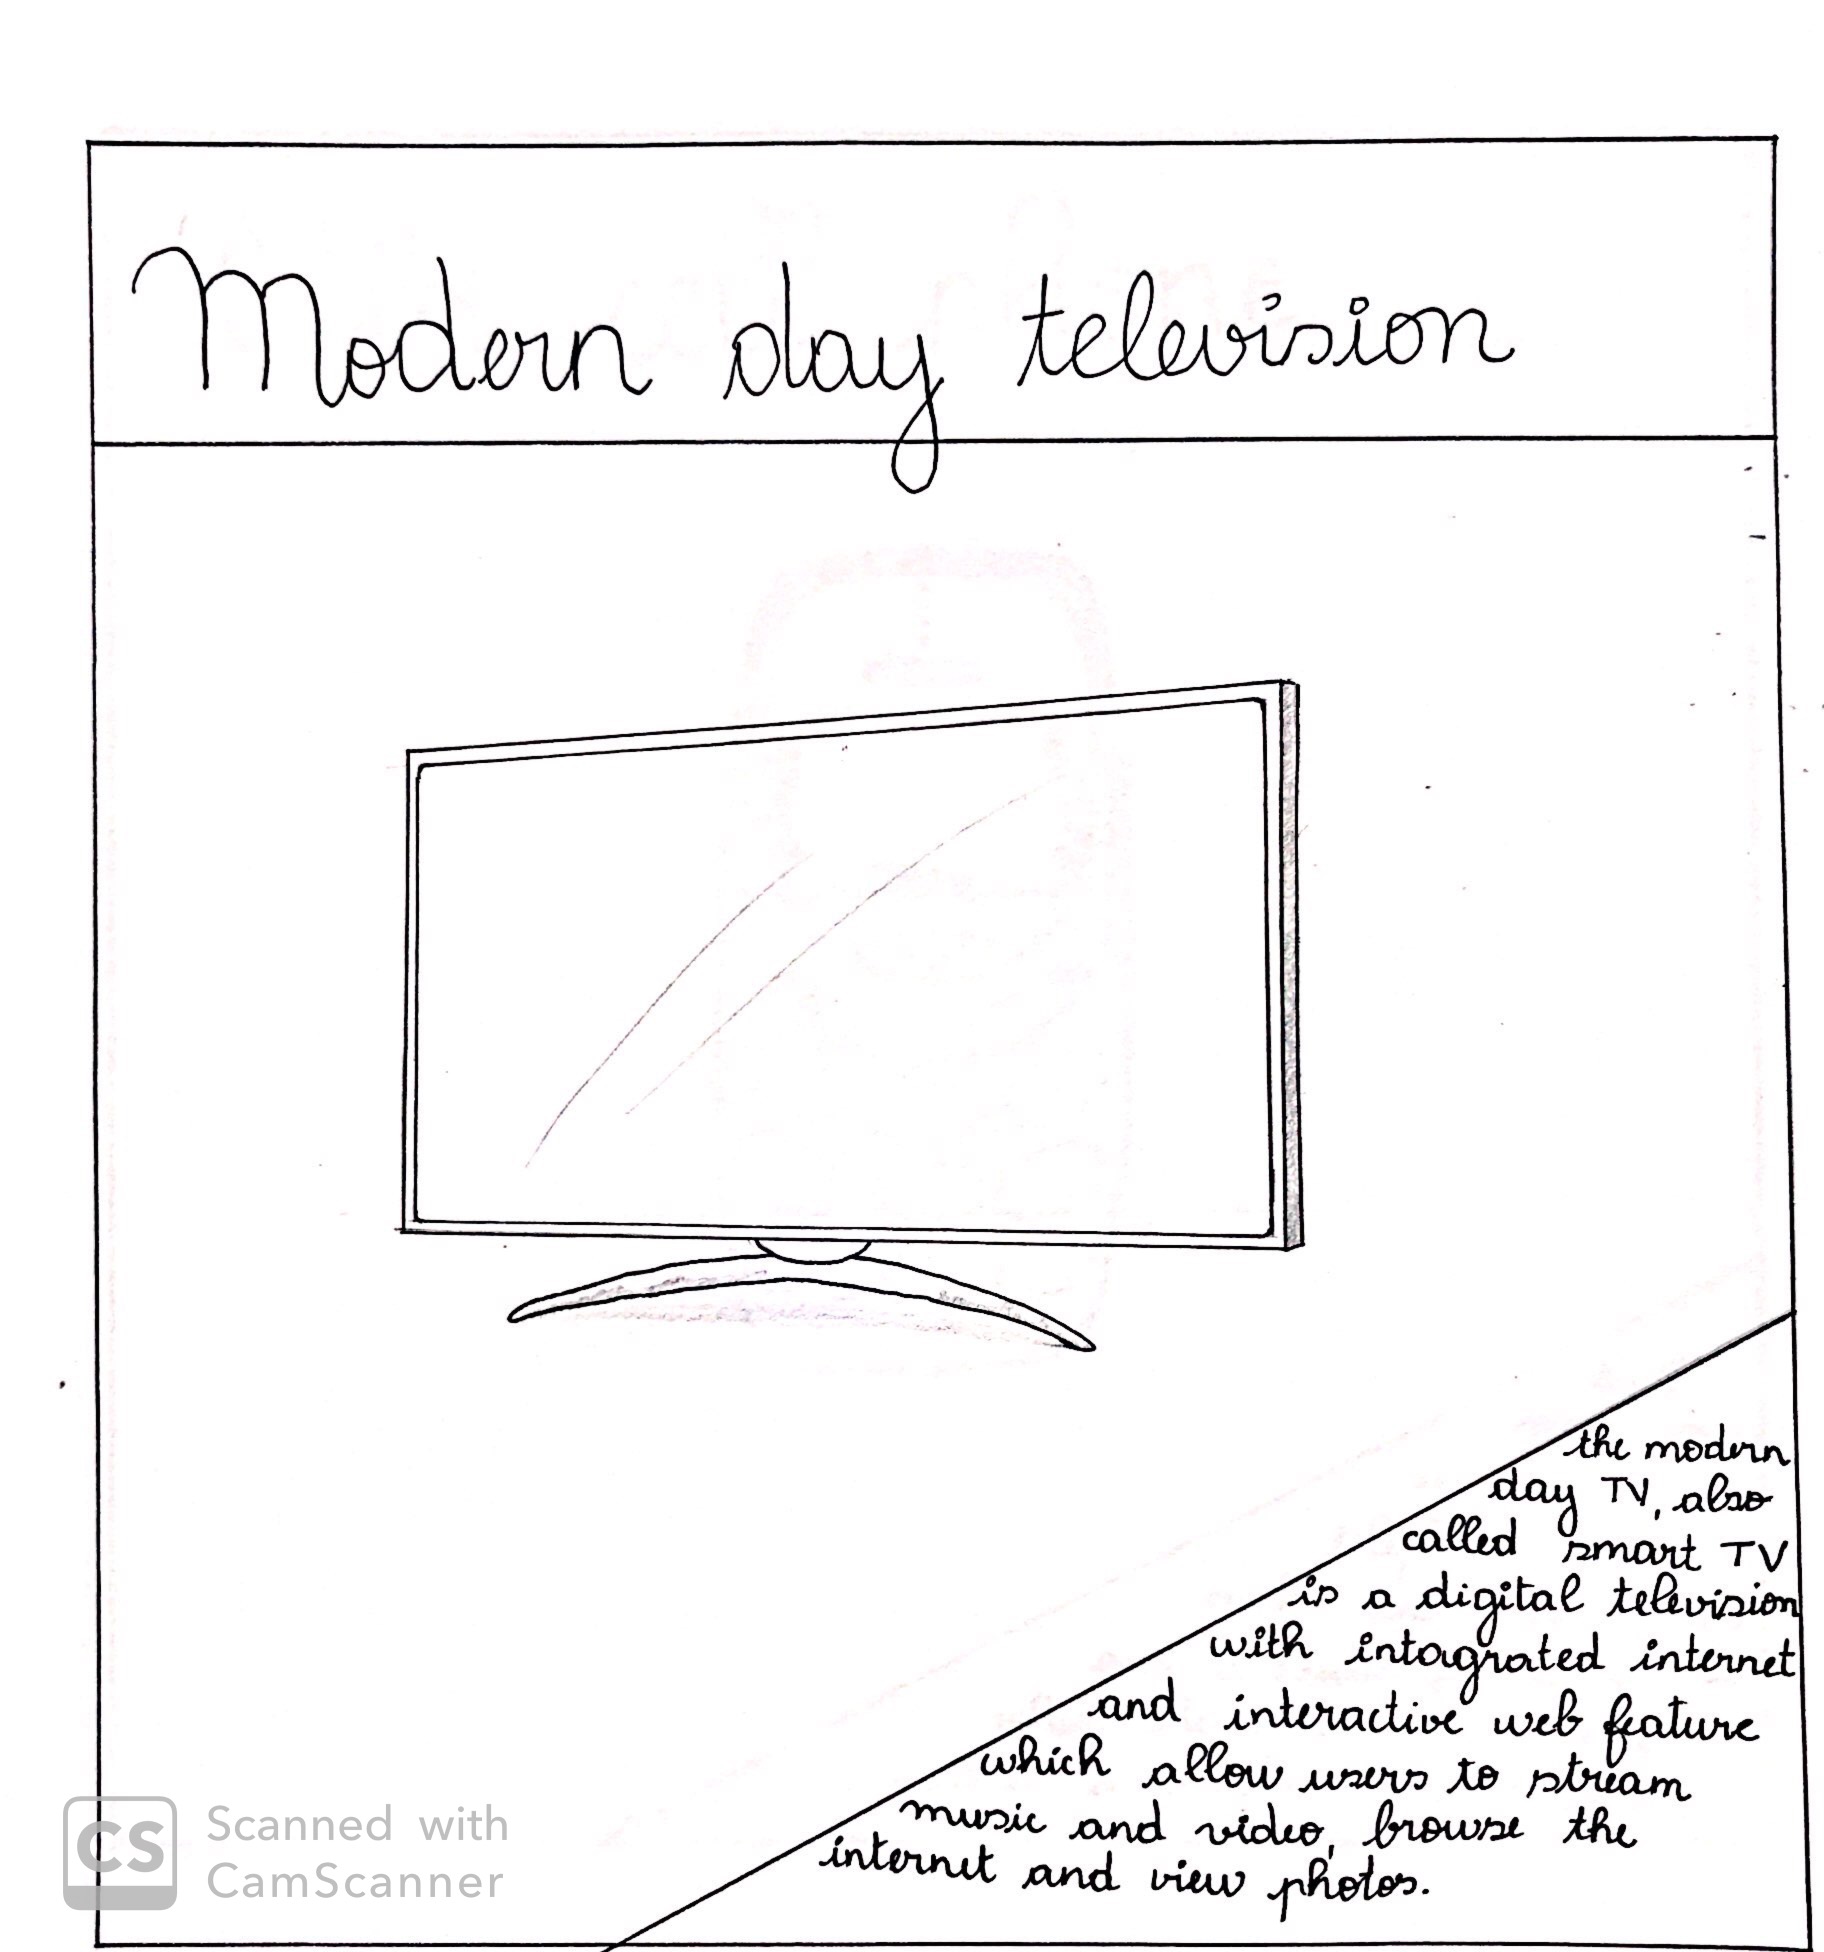 Modern day television
the modern
day TV, also
called smart TV
is a digital television
with intagrated internet
and interactive web feature
which allow users to stream
music and video, browse the
internet and view photos.
CS
Scanned with
CamScanner